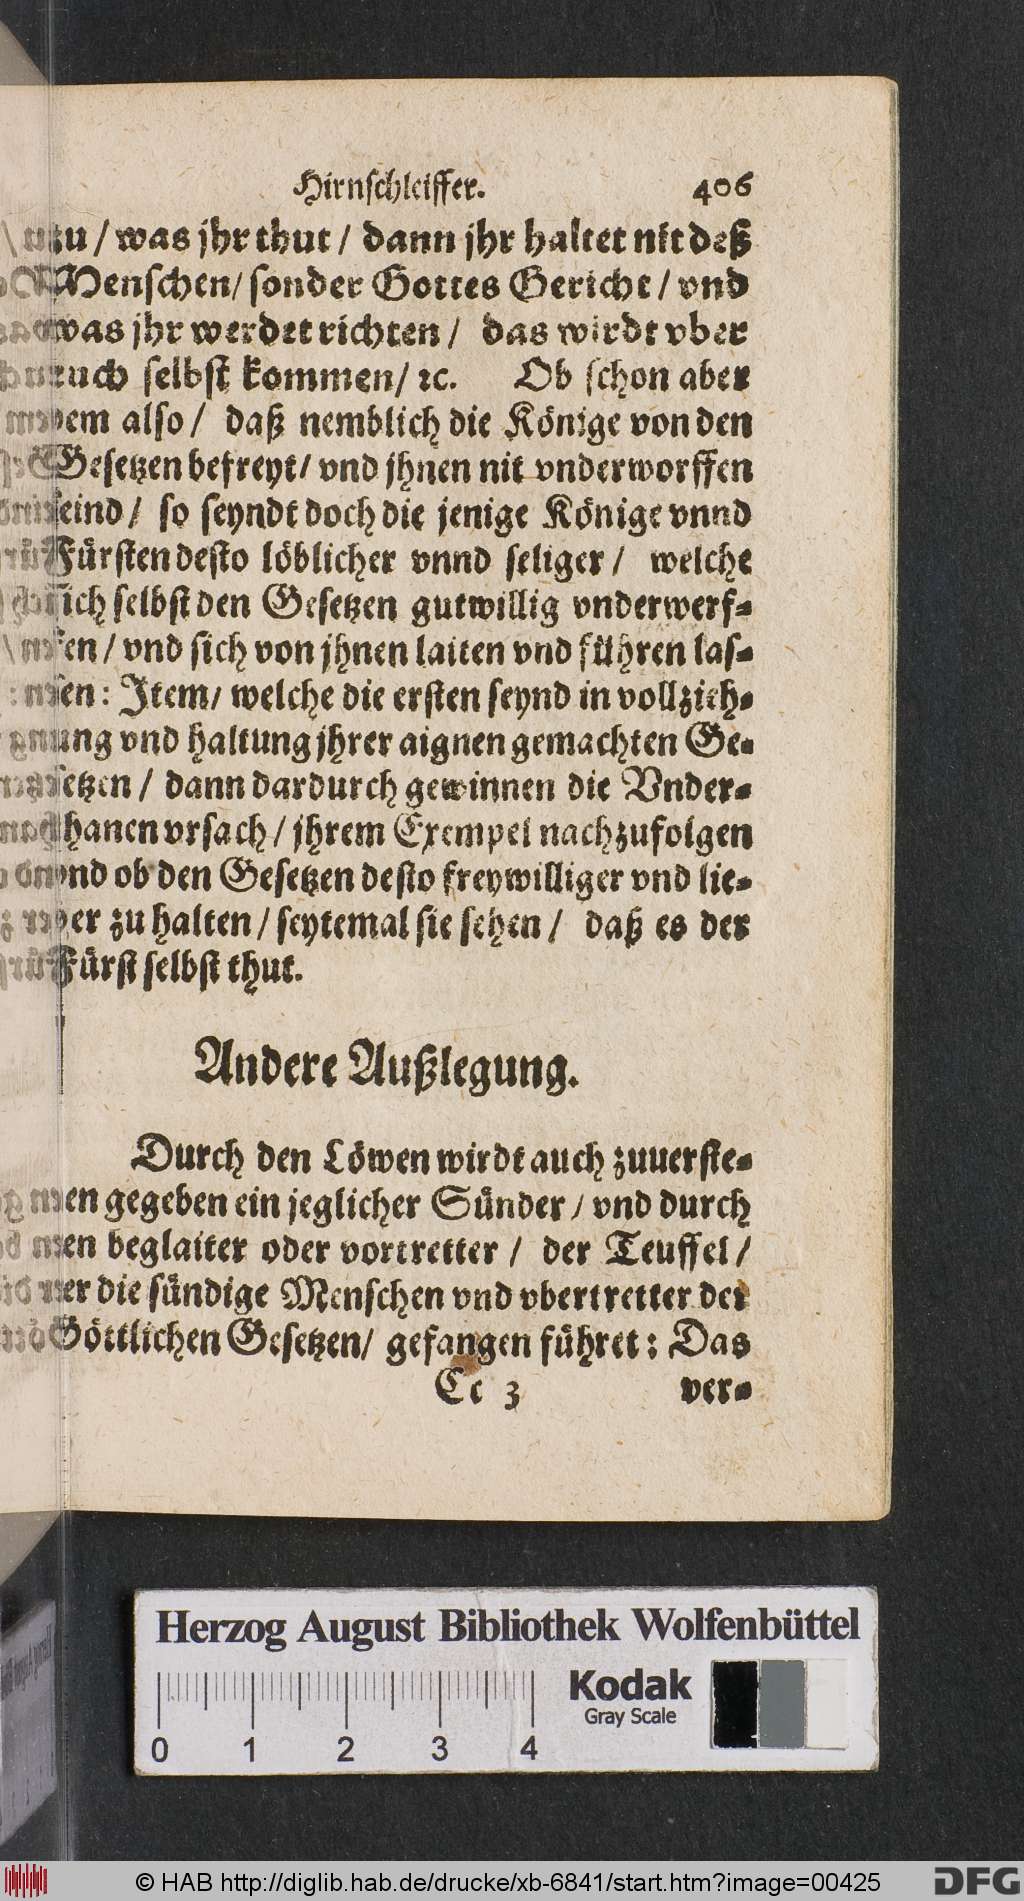 Hirnschleiffer. 406
zu / was jhr thut / dann jhr haltet nit deß
Menschen / sonder Gottes Gericht / vnd
was jhr werdet richten / das wirdt vber
euch selbst kommen / ꝛc. Ob schon aber
dem also / daß nemblich die Könige von den
Gesetzen befreyt / vnd jhnen nit vnderworffen
seind / so seyndt doch die jenige Könige vnnd
Fürsten desto löblicher vnnd seliger / welche
sich selbst den Gesetzen gutwillig vnderwerf-
fen / vnd sich von jhnen laiten vnd führen las-
sen : Item / welche die ersten seynd in vollzieh-
ung vnd haltung jhrer aignen gemachten Ge-
setzen / dann dardurch gewinnen die Vnder-
thanen vrsach / jhrem Exempel nachzufolgen
vnd ob den Gesetzen desto freywilliger vnd lie-
ber zu halten / seytemal sie sehen / daß es der
Fürst selbst thut.
Andere Außlegung.
Durch den Löwen wirdt auch zuuerste-
hen gegeben ein jeglicher Sünder / vnd durch
den beglaiter oder vortretter / der Teuffel /
der die sündige Menschen vnd vbertretter der
Göttlichen Gesetzen / gefangen führet : Das
Cc 3 ver-
Herzog August Bibliothek Wolfenbüttel
Kodak
Gray Scale
0 1 2 3 4
© HAB http://diglib.hab.de/drucke/xb-6841/start.htm?image=00425
DFG